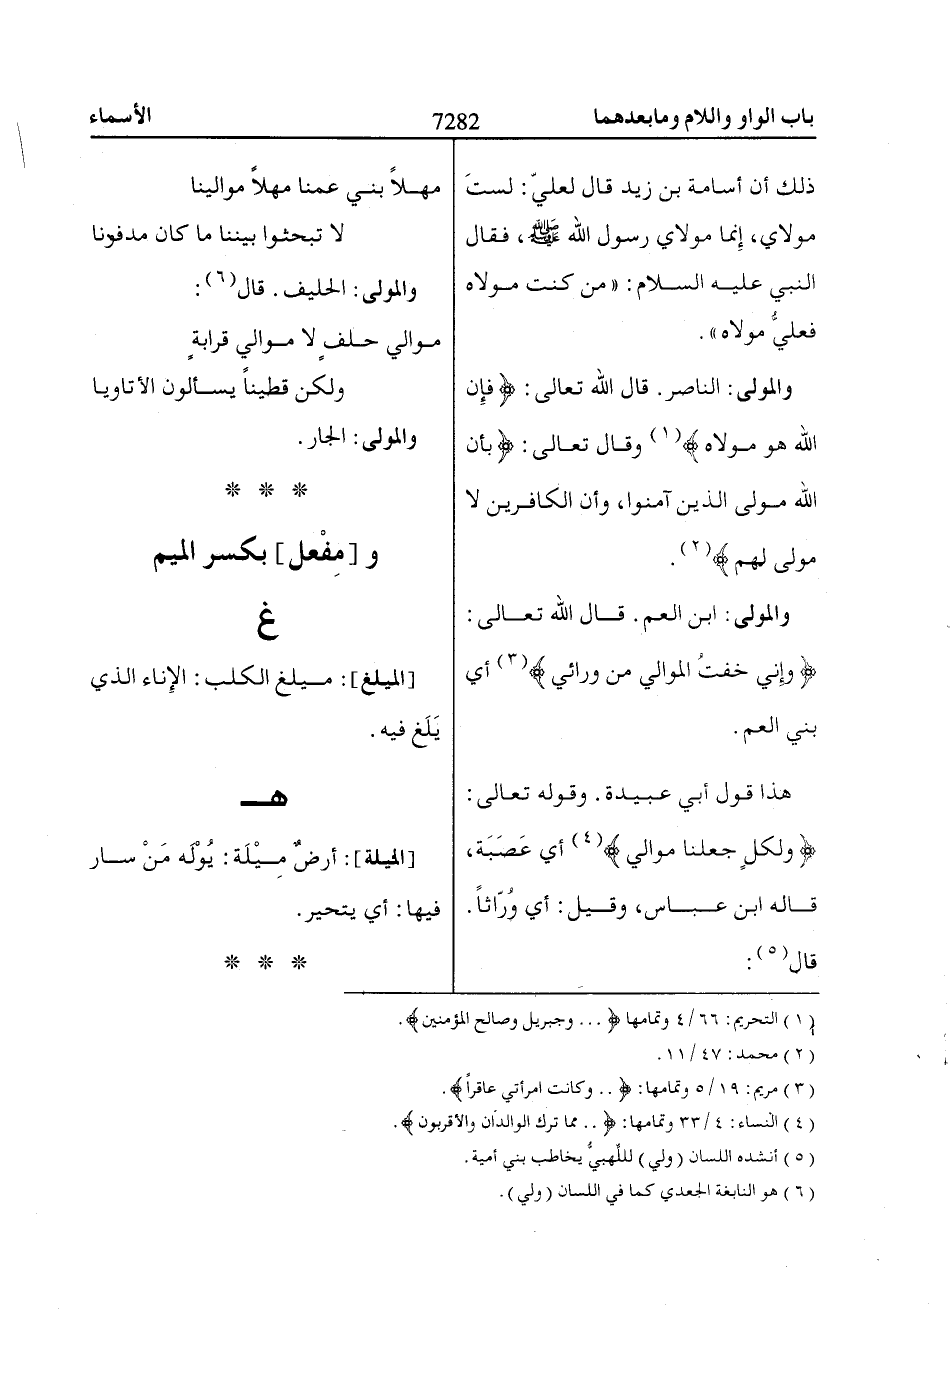 باب الواو واللام ومابعدهما 7282 الأسماء
ذلك أن أسامة بن زيد قال لعليّ: لستَ
مولاي، إنما مولاي رسول الله ﷺ، فقال
النبي عليه السلام: « من كنت مولاه
فعليُّ مولاه ».
والمولى: الناصر. قال الله تعالى: ﴿ فإن
الله هو مولاه ﴾(١) وقال تعالى: ﴿ بأن
الله مولى الذين آمنوا، وأن الكافرين لا
مولى لهم ﴾(٢).
والمولى: ابن العم. قال الله تعالى:
﴿ وإني خفتُ الموالي من ورائي ﴾(٣) أي
بني العم.
هذا قول أبي عبيدة. وقوله تعالى:
﴿ ولكلٍ جعلنا موالي ﴾(٤) أي عَصَبَة،
قاله ابن عباس، وقيل: أي وُرّاثاً.
قال(٥):
مهلاً بني عمنا مهلاً موالينا
لا تبحثوا بيننا ما كان مدفونا
والمولى: الحليف. قال(٦):
موالي حلفٍ لا موالي قرابةٍ
ولكن قطيناً يسألون الأتاويا
والمولى: الجار.
* * *
و [مِفْعل] بكسر الميم
غ
[الميلغ]: ميلغ الكلب: الإناء الذي
يَلَغ فيه.
هـ
[الميلة]: أرضٌ مِيْلَة: يُوْلَه مَنْ سار
فيها: أي يتحير.
* * *
(١) التحريم: ٤/٦٦ وتمامها ﴿ ... وجبريل وصالح المؤمنين﴾.
(٢) محمد: ١١/٤٧.
(٣) مريم: ٥/١٩ وتمامها: ﴿ .. وكانت امرأتي عاقراً﴾.
(٤) النساء: ٣٣/٤ وتمامها: ﴿ .. مما ترك الوالدان والأقربون ﴾.
(٥) أنشده اللسان (ولي) للّهبيُّ يخاطب بني أمية.
(٦) هو النابغة الجعدي كما في اللسان (ولي).